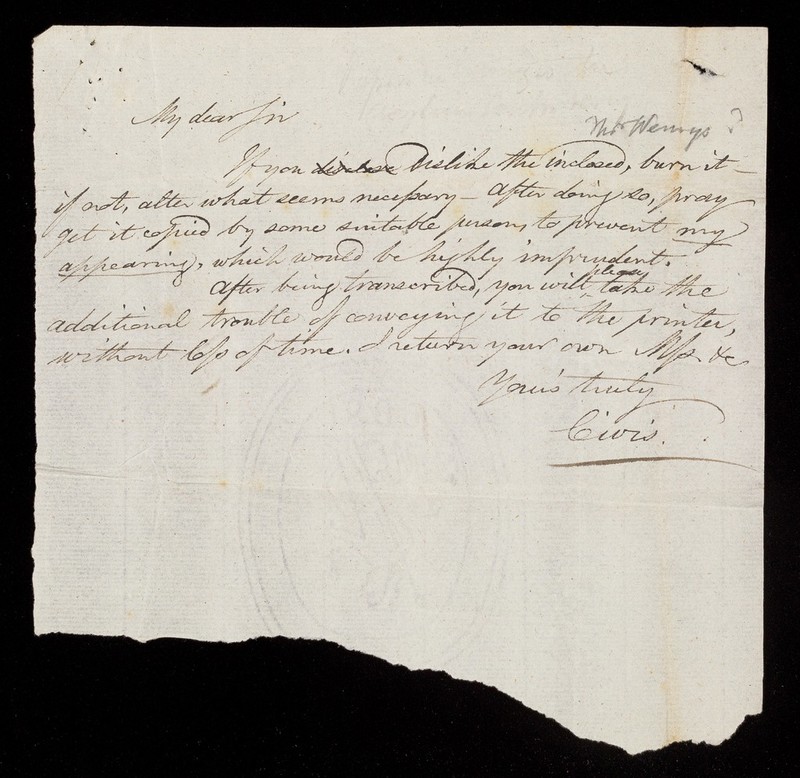 My dear Sir
Mr Wemys ?
If you dislike the inclosed, burn it –
if not, alter what seems necessary – After doing so, pray
get it copied by some suitable person, to prevent my
appearing, which would be highly imprudent.
After being transcribed, you will please take the
additional trouble of conveying it to the printer,
without loss of time. I return your own Mss. &c
Your's truly
Civis.